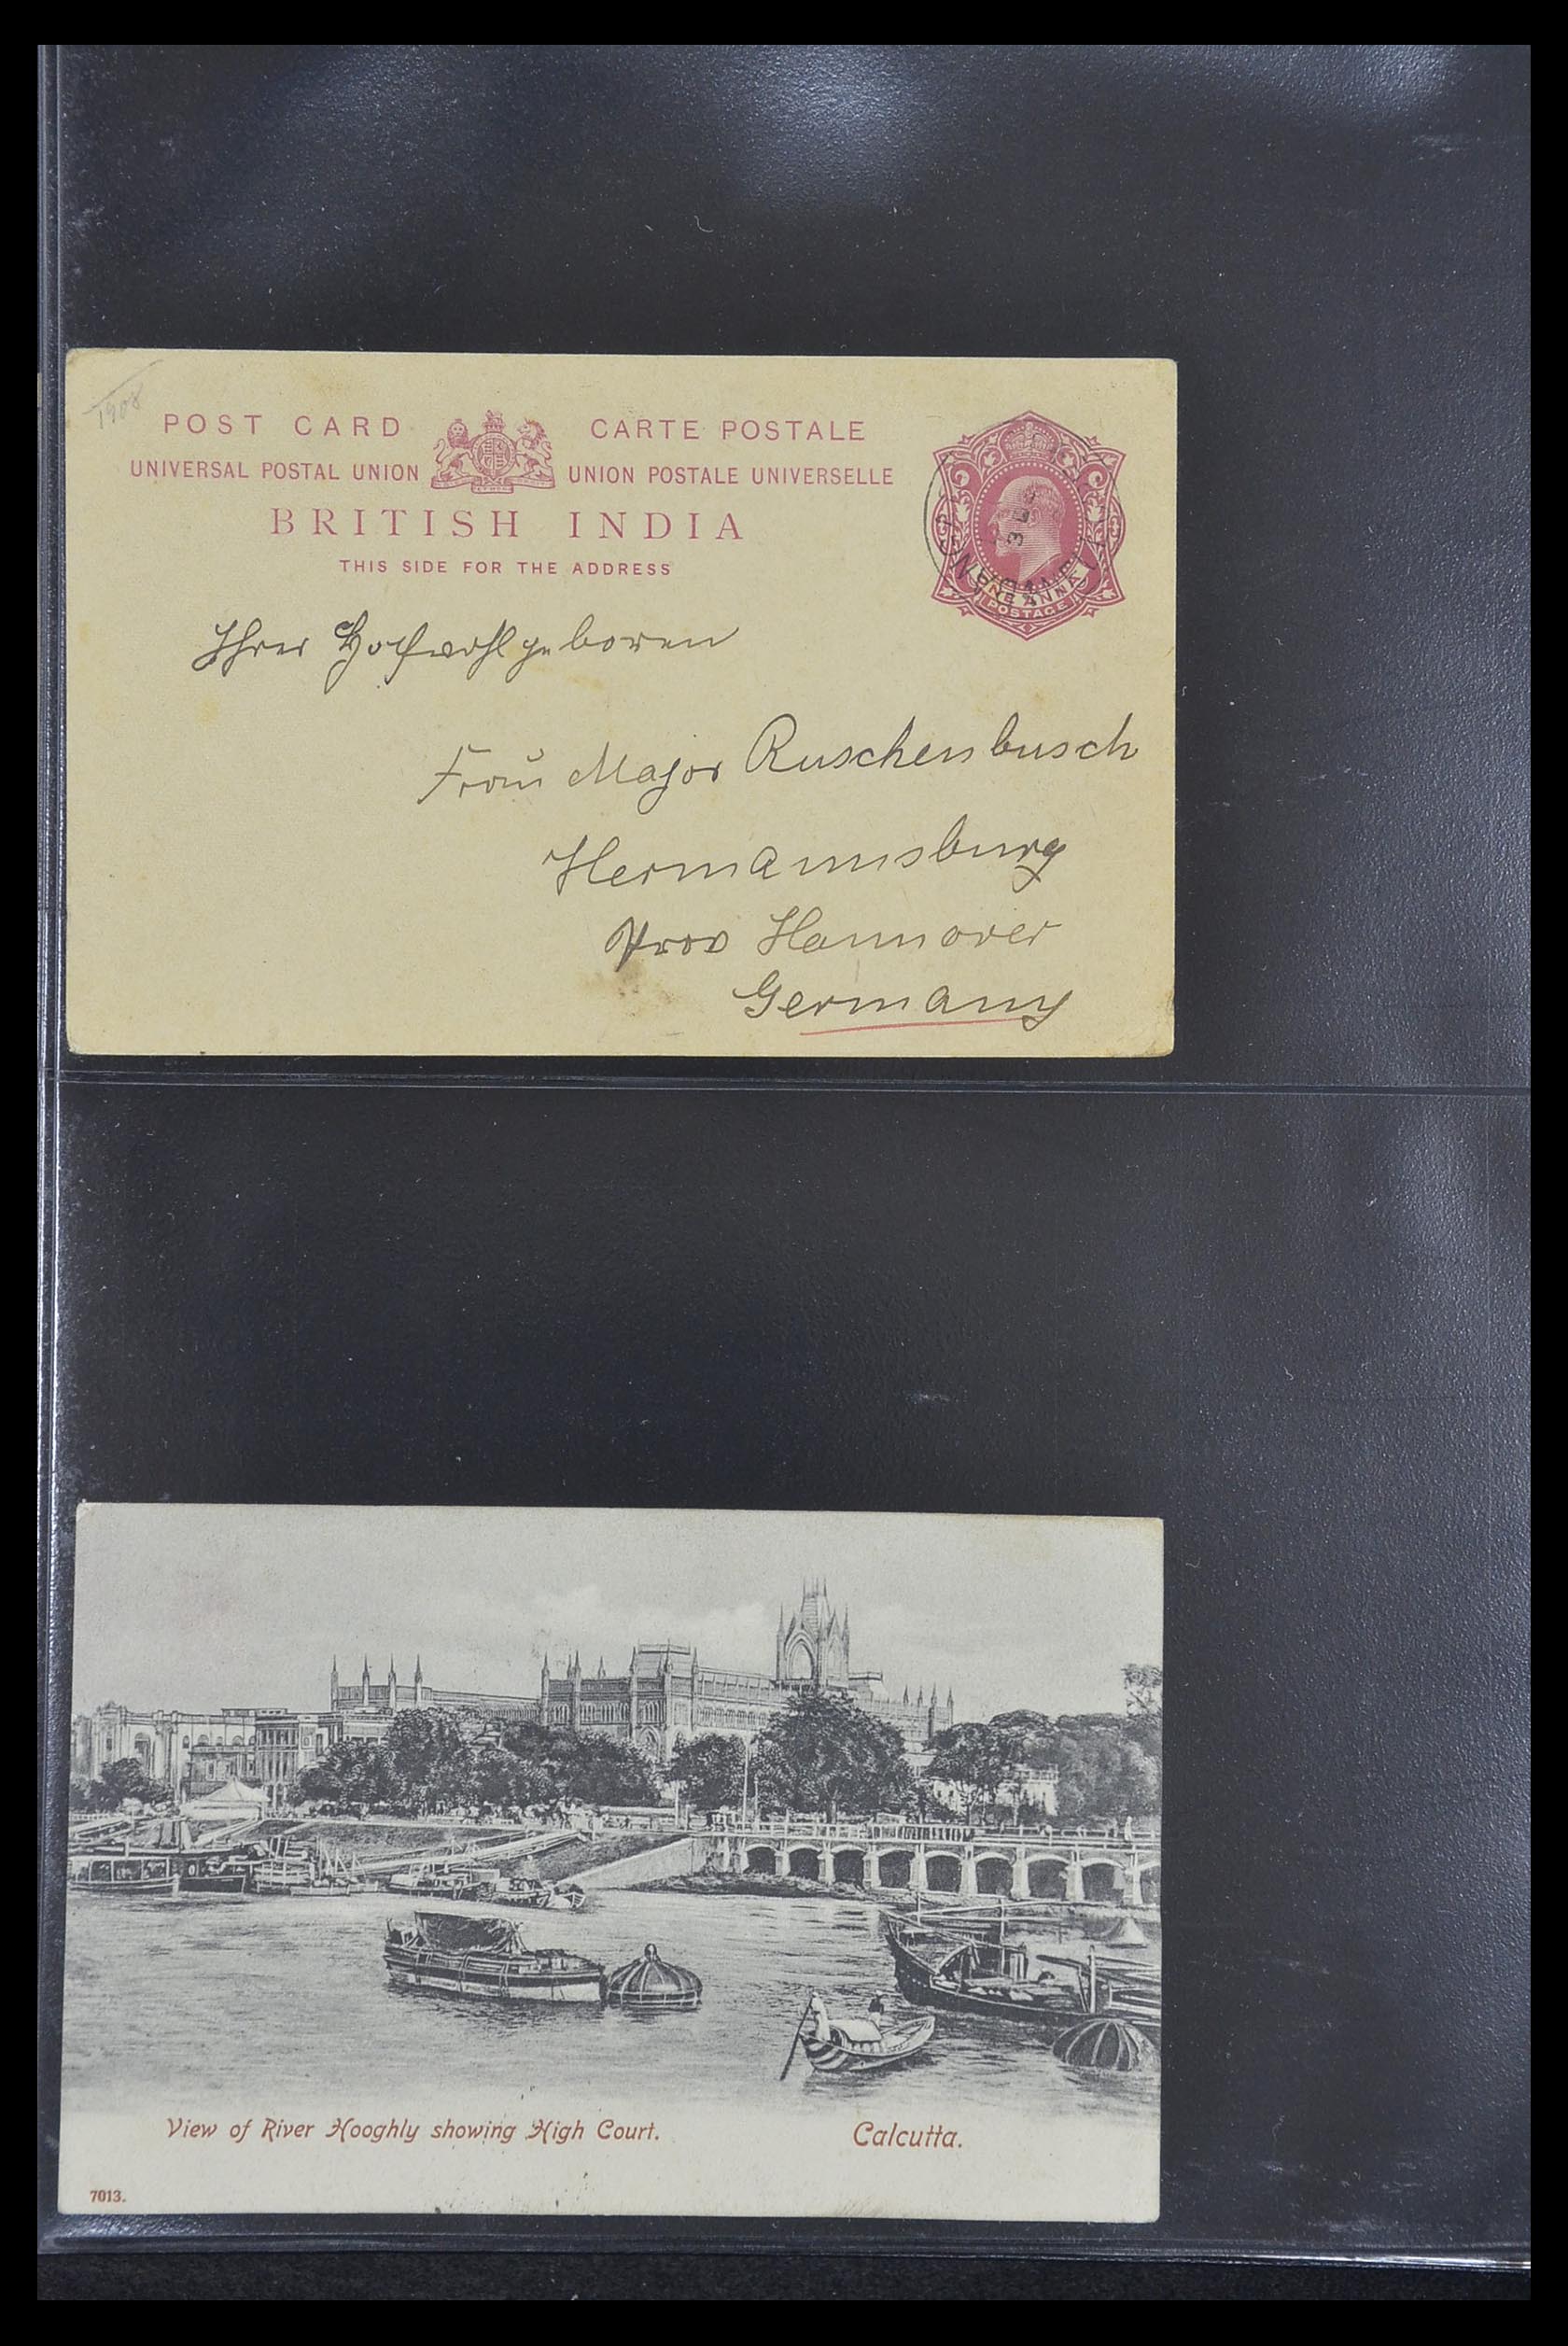 1908
POST CARD CARTE POSTALE
UNIVERSAL POSTAL UNION UNION POSTALE UNIVERSELLE
BRITISH INDIA
THIS SIDE FOR THE ADDRESS
ONE ANNA
POSTAGE
Ihrer Hochwohlgeboren
Frau Major Ruschenbusch
Hermannsburg
Prov Hannover
Germany
View of River Hooghly showing High Court. Calcutta.
7013.